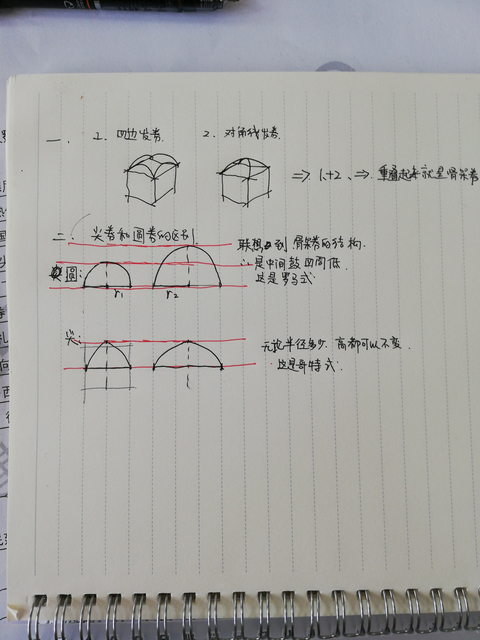 一、 1. 四边发券. 2. 对角线发券.
⇒ 1.+2. ⇒ 重叠起来就是骨架券
二、尖券和圆券的区别
联想到骨架券的结构.
圆: r1 r2 ∴是中间鼓四周低.
这是罗马式.
尖: 无论半径多少. 高都可以不变.
这是哥特式.